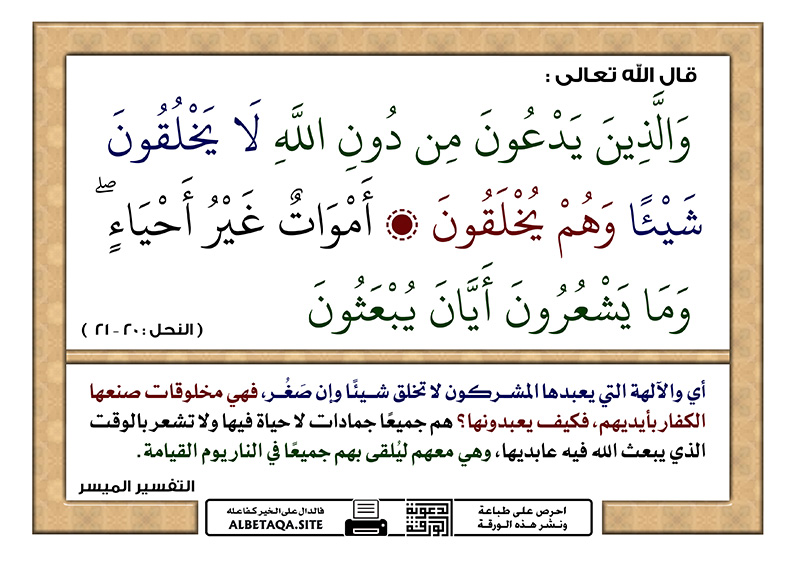 قال الله تعالى :
وَالَّذِينَ يَدْعُونَ مِن دُونِ اللَّهِ لَا يَخْلُقُونَ
شَيْئًا وَهُمْ يُخْلَقُونَ ۝ أَمْوَاتٌ غَيْرُ أَحْيَاءٍ ۖ
وَمَا يَشْعُرُونَ أَيَّانَ يُبْعَثُونَ
( النحل : ٢٠ - ٢١ )
أي والآلهة التي يعبدها المشركون لا تخلق شيئًا وإن صَغُر، فهي مخلوقات صنعها
الكفار بأيديهم، فكيف يعبدونها؟ هم جميعًا جمادات لا حياة فيها ولا تشعر بالوقت
الذي يبعث الله فيه عابديها، وهي معهم ليُلقى بهم جميعًا في النار يوم القيامة.
التفسير الميسر
احرص على طباعة
ونشر هذه الورقة
الورقة
الدعوية
فالدال على الخير كفاعله
ALBETAQA.SITE